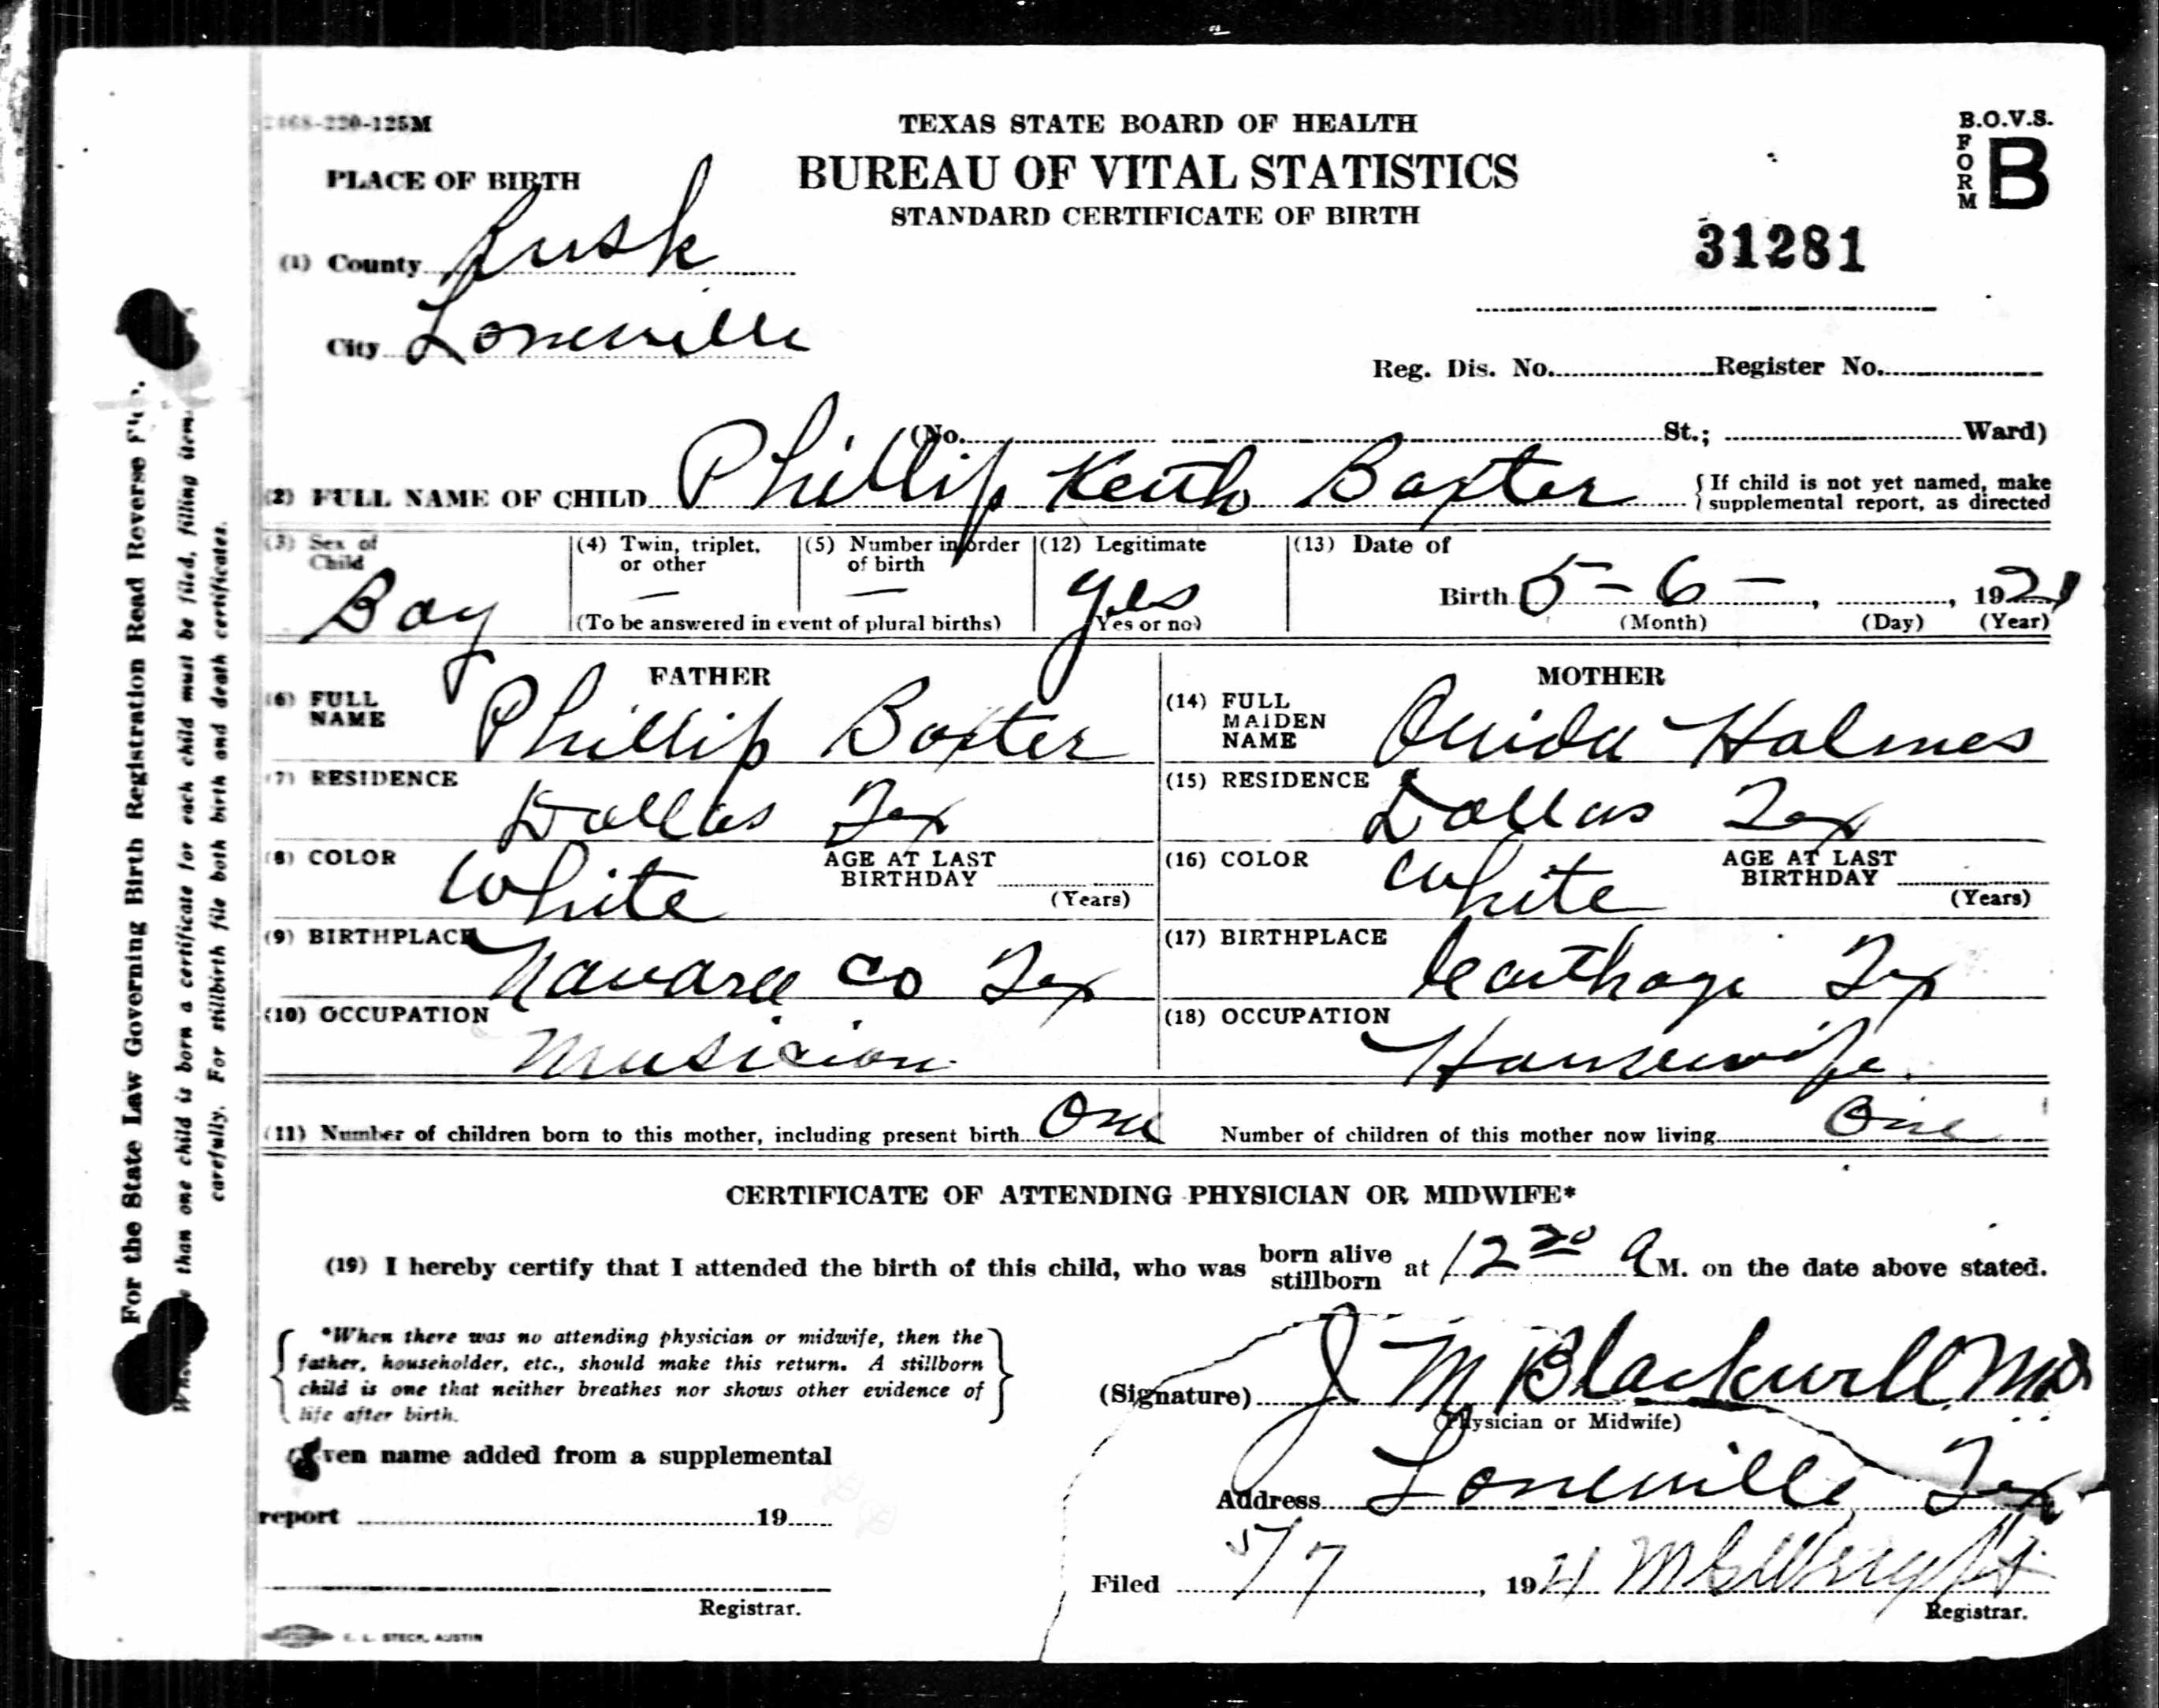 468-220-125M
TEXAS STATE BOARD OF HEALTH
BUREAU OF VITAL STATISTICS
STANDARD CERTIFICATE OF BIRTH
B.O.V.S.
FORM B
31281
PLACE OF BIRTH
(1) County Rusk
City Loneville
Reg. Dis. No. Register No.
(No. St.; Ward)
(2) FULL NAME OF CHILD Phillip Keith Baxter
{If child is not yet named, make
supplemental report, as directed
(3) Sex of Child Boy
(4) Twin, triplet, or other —
(5) Number in order of birth —
(To be answered in event of plural births)
(12) Legitimate yes
(Yes or no)
(13) Date of
Birth 5-6-, , 1921
(Month) (Day) (Year)
FATHER
(6) FULL NAME Phillip Baxter
(7) RESIDENCE Dallas Tex
(8) COLOR White AGE AT LAST BIRTHDAY (Years)
(9) BIRTHPLACE Co Tex
(10) OCCUPATION Musician
MOTHER
(14) FULL MAIDEN NAME Holmes
(15) RESIDENCE Dallas Tex
(16) COLOR White AGE AT LAST BIRTHDAY (Years)
(17) BIRTHPLACE Carthage Tex
(18) OCCUPATION Housewife.
(11) Number of children born to this mother, including present birth One
Number of children of this mother now living One
CERTIFICATE OF ATTENDING PHYSICIAN OR MIDWIFE*
(19) I hereby certify that I attended the birth of this child, who was born alive stillborn at 12 20 A M. on the date above stated.
{*When there was no attending physician or midwife, then the
father, householder, etc., should make this return. A stillborn
child is one that neither breathes nor shows other evidence of
life after birth.}
(Signature) J M Blackwell MD
(Physician or Midwife)
Given name added from a supplemental
report 19
Registrar.
Address Loneville Tex
Filed 5/7, 1921
Registrar.
E. L. STECK, AUSTIN
For the State Law Governing Birth Registration Read Reverse
than one child is born a certificate for each child must be filed, filling item
carefully. For stillbirth file both birth and death certificates.